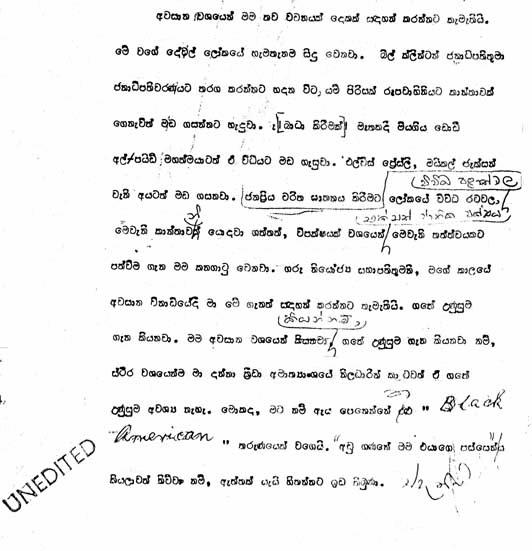 අවසාන වශයෙන් මම තව වචනයක් දෙකක් සඳහන් කරන්නට කැමැතියි.
මේ වගේ දේවල් ලෝකයේ හැමතැනම සිදු වෙනවා. බිල් ක්ලින්ටන් ජනාධිපතිතුමා
ජනාධිපතිවරණයට තරග කරන්නට හදන විට, යම් පිරිසක් රූපවාහිනියට කාන්තාවක්
ගෙනැවිත් මඩ ගසන්නට හැදුවා. [බාධා කිරීමක්] මෑතකදී මියගිය ඩොඩි
අල්ෆයිඩ් මහත්මයාටත් ඒ විධියට මඩ ගැසුවා. එල්විස් ප්‍රෙස්ලි, මයිකල් ජැක්සන්
වැනි අයටත් මඩ ගසනවා. ජනප්‍රිය චරිත ඝාතනය කිරීමට ලෝකයේ විවිධ රටවලා
මෙවැනි කාන්තාවක් යොදවා ගත්තත්, විපක්ෂයක් වශයෙන් මෙවැනි තත්ත්වයකට
පත්වීම ගැන මම කනගාටු වෙනවා. ගරු නියෝජ්‍ය සභාපතිතුමනි, මගේ කාලයේ
අවසාන විනාඩියේදී මා මේ ගැනත් සඳහන් කරන්නට කැමැතියි. ගතේ උණුසුම
කියන්නම්,
ගැන කියනවා. මම අවසාන වශයෙන් කියනවා, ගතේ උණුසුම ගැන කියනවා නම්,
ස්ථිර වශයෙන්ම මා දන්නා ක්‍රීඩා අමාත්‍යාංශයේ නිලධාරීන් කාටවත් ඒ ගතේ
උණුසුම අවශ්‍ය නැහැ. මොකද, මට නම් ඇය පෙනෙන්නේ " Black
American " තරුණයෙක් වගෙයි. අඩු ගණනේ මම එයාගෙ පස්සෙන්
ගියාවත් කිව්වා නම්, ඇත්තක් යැයි හිතන්නට ඉඩ තිබුණා.
UNEDITED